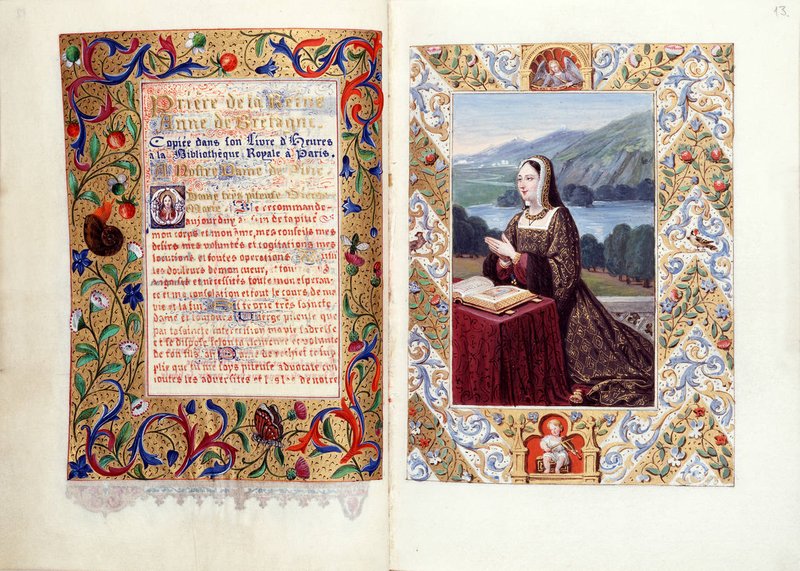 13.
Prière de la Reine
Anne de Bretagne.
Copiée dans son Livre d'Heures
à la Bibliothèque Royale à Paris.
A Notre Dame de Pitié
Dame très piteuse Vierge
Marie, Je recommande
aujourduy à fin de ta pitié
mon corps et mon âme, mes conseils mes
désirs mes voluntés et cogitations mes
locutions et toutes operations
les douleurs de mon cueur,
et nécessités toute mon esperan
ce et ma consolation et tout le cours de ma
vie et la fin très sainte
dame et toujours Vierge piteuse que
par ta sainte intercession ma vie s'adresse
et se dispose selon la clemence et volunté
de ton fils. Dame de rechief te sup
plie que tu me soys piteuse advocate con
toutes les adversités et de notre